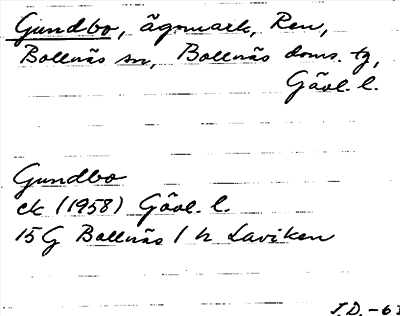 Gundbo, ägomark, Ren,
Bollnäs sn, Bollnäs doms. tg,
Gävl. l.
Gundbo
ek (1958) Gävl. l.
15G Bollnäs 1 h Laviken
J.D. -61